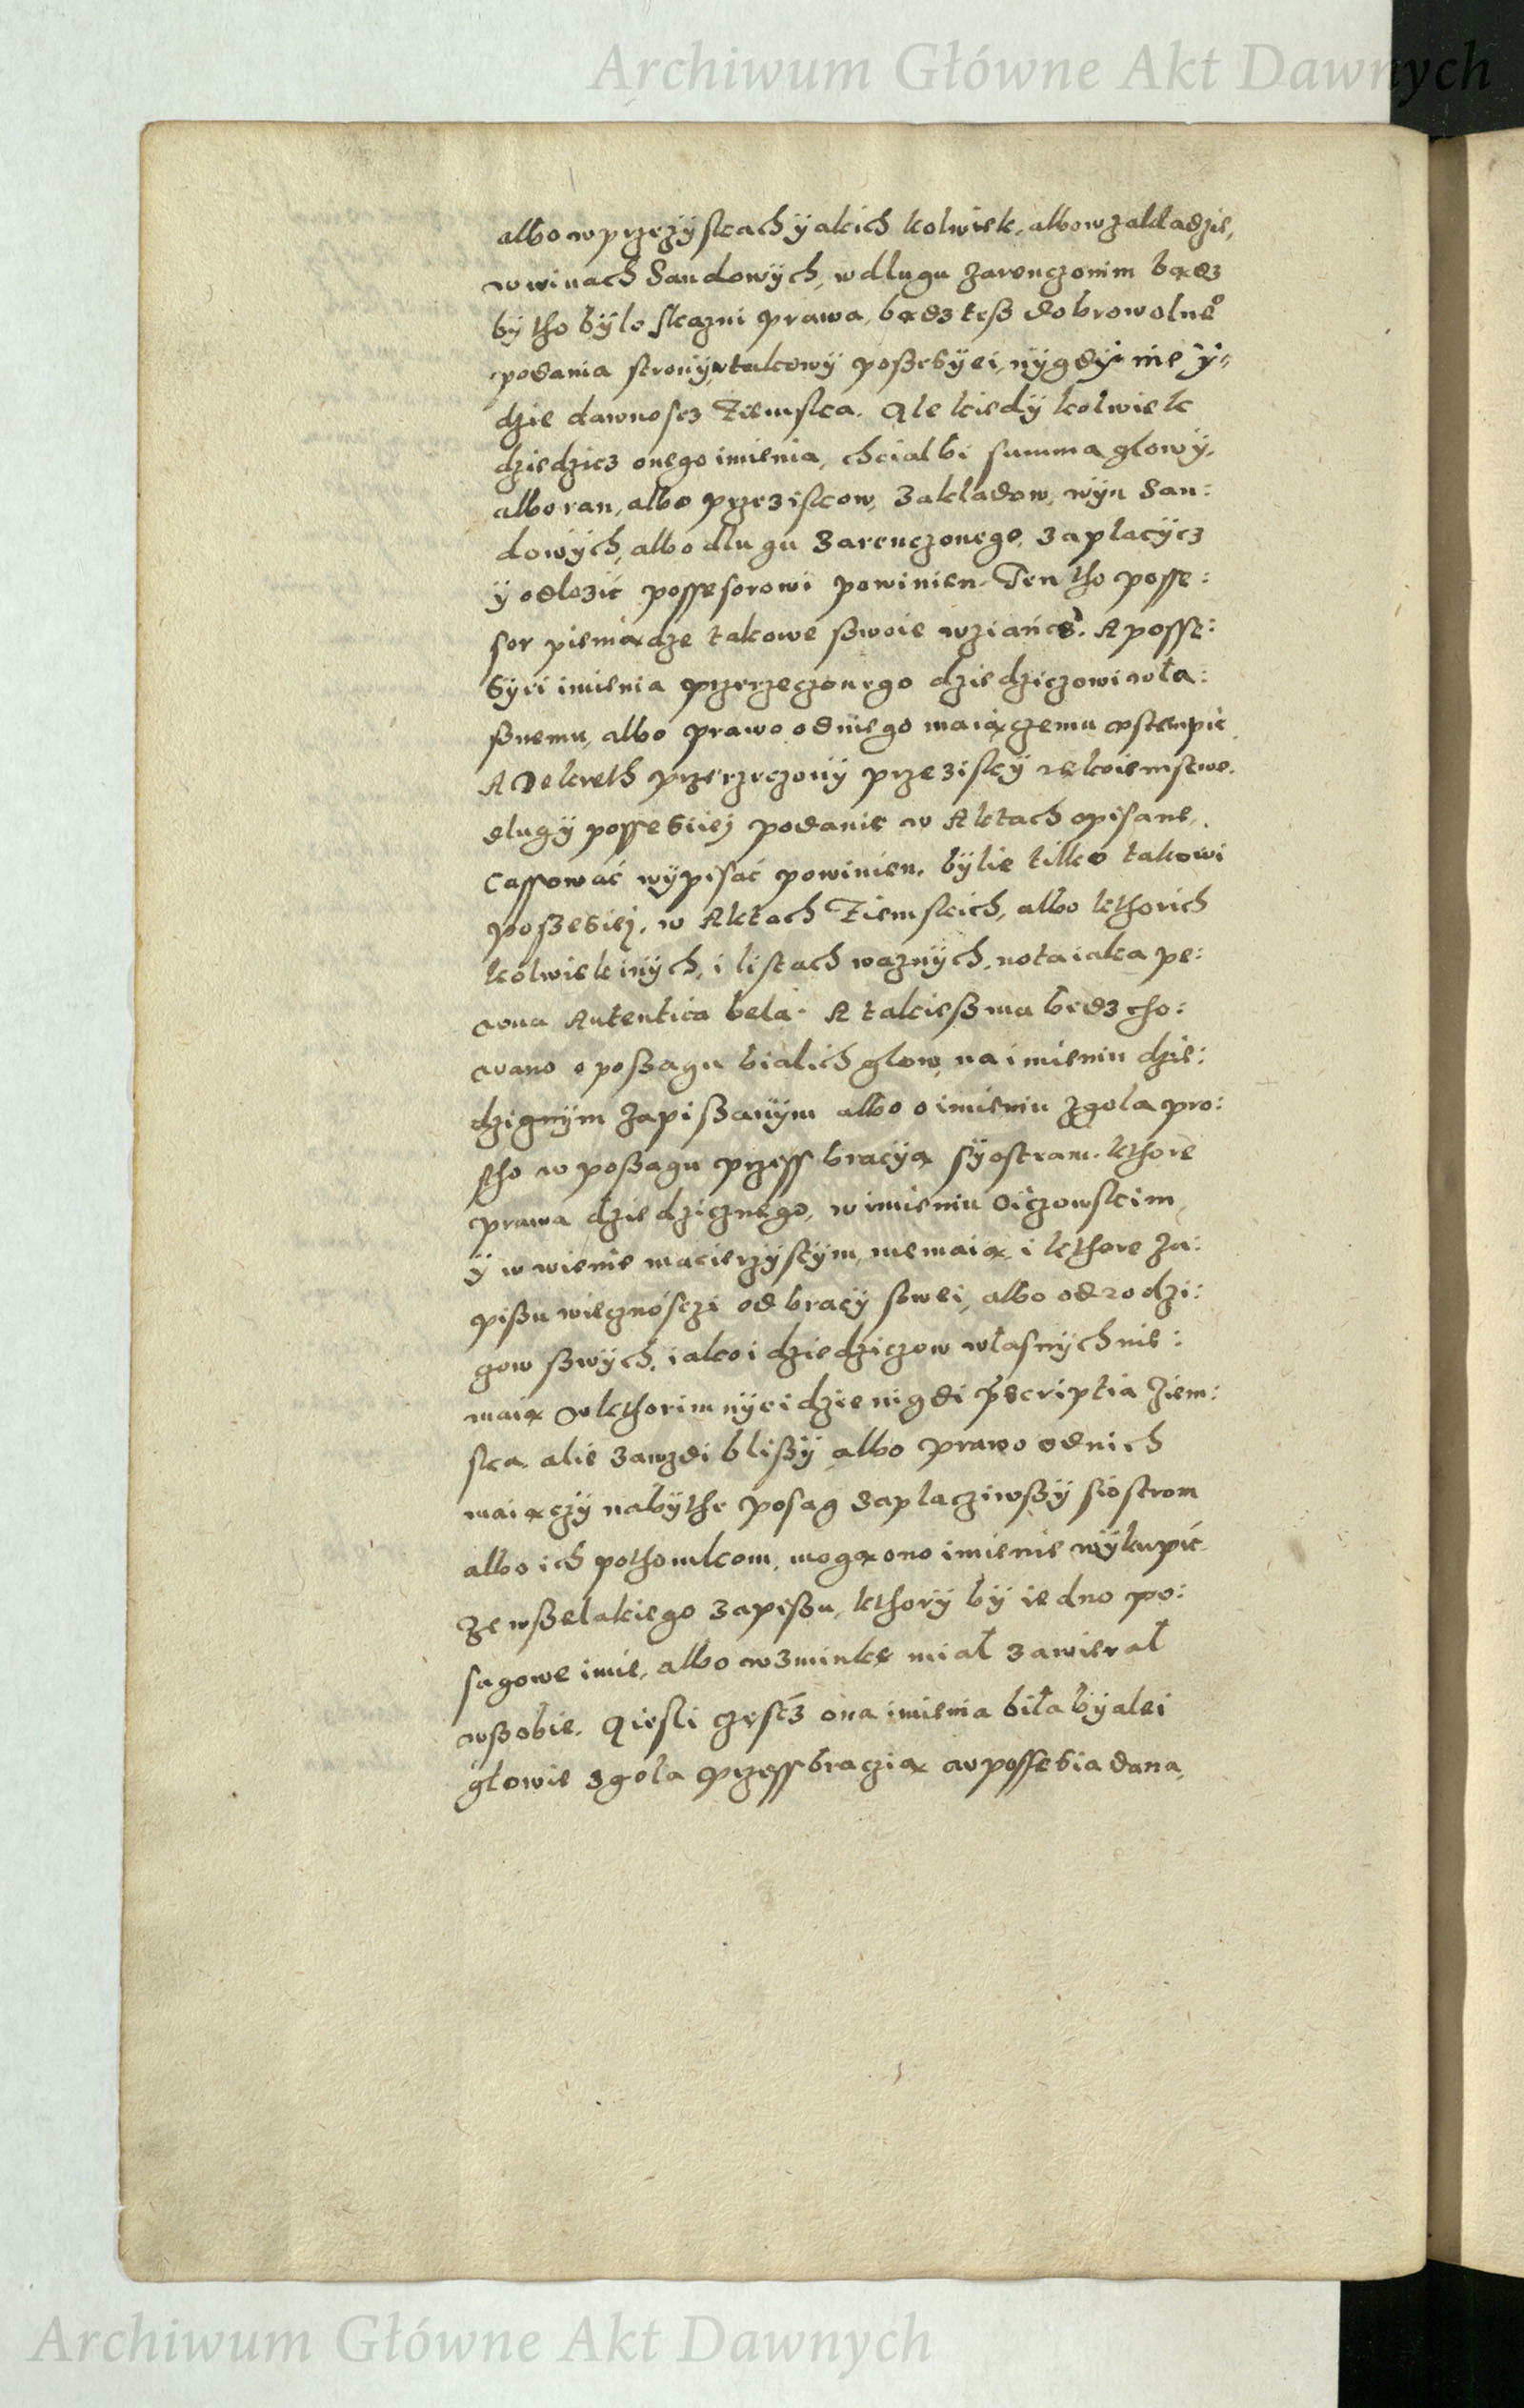 Archiwum Główne Akt Dawnych
albo w przezyskach ÿakich kolwiek, albo w zakładzie,
w winach Sandowÿch, w dlugu zarenczonim bądz
bÿ tho bÿlo skazni prawa, bądz teß dobrowolne°
podania stronÿ, w takowÿ poßesÿei, nÿgdÿ nie ÿ=
dzie dawnoscz Ziemska. Ale kiedÿ kolwiek
dziedzicz onego imienia, chcial bi summa glowÿ,
albo ran, albo przeziskow, Zakladow, wÿn San:
dowÿch, albo dlugu Zarenczonego, zaplacÿcz
ÿ odlozić possesorowi powinien. Ten tho posse:
sor pieniądze takowe ßwoie wziańcz. A posse:
sÿei imienia przerzeczonego dziedziczowi wła:
ßnemu, albo prawo od niego maiączemu ostempic
A Dekreth przerzeczonÿ przeziskÿ rekoiemstwo.
dlugÿ possesiiej podanie w Aktach opisane,
Cassować wÿpisać powinien. bÿlie tilko takowi
poßesiej, w Aktach Ziemskich, albo kthorich
kolwiek inÿch, i listach waznÿch, nota iaka pe:
wna Autentica bela. A takießma bedz cho:
wano o poßagu bialich glow, na imieniu dzie:
dzignÿm zapißanÿm albo o imieniu zgola pro:
stho w poßagu przess bracÿą sÿostram. kthore
prawa dziedzicznego, w imieniu oiczowskim,
ÿ w wienie macierzÿstÿm, niemaią, i kthore za:
pißu wiecznosczi od bracÿ swei, albo od rodzi:
gow ßwÿch, iako i dziedziczow własnÿch nie:
maią w kthorim nÿeidzie nigdi pscriptia Ziem:
ska. alie zawzdi blißÿ albo prawo od nich
maiączÿ nabÿthe posag zaplacziwßÿ siostrom
albo ich pothomkom, mogą ono imienie wÿkupić
ze wßelakiego zapißu, kthorÿ bÿ iedno po:
sagowe imie, albo wzminke miał zawierał
w ßobie. A iesli częścz ona imienia biła bÿalei
głowie zgola przess braczią w possesia dana,
Archiwum Główne Akt Dawnych